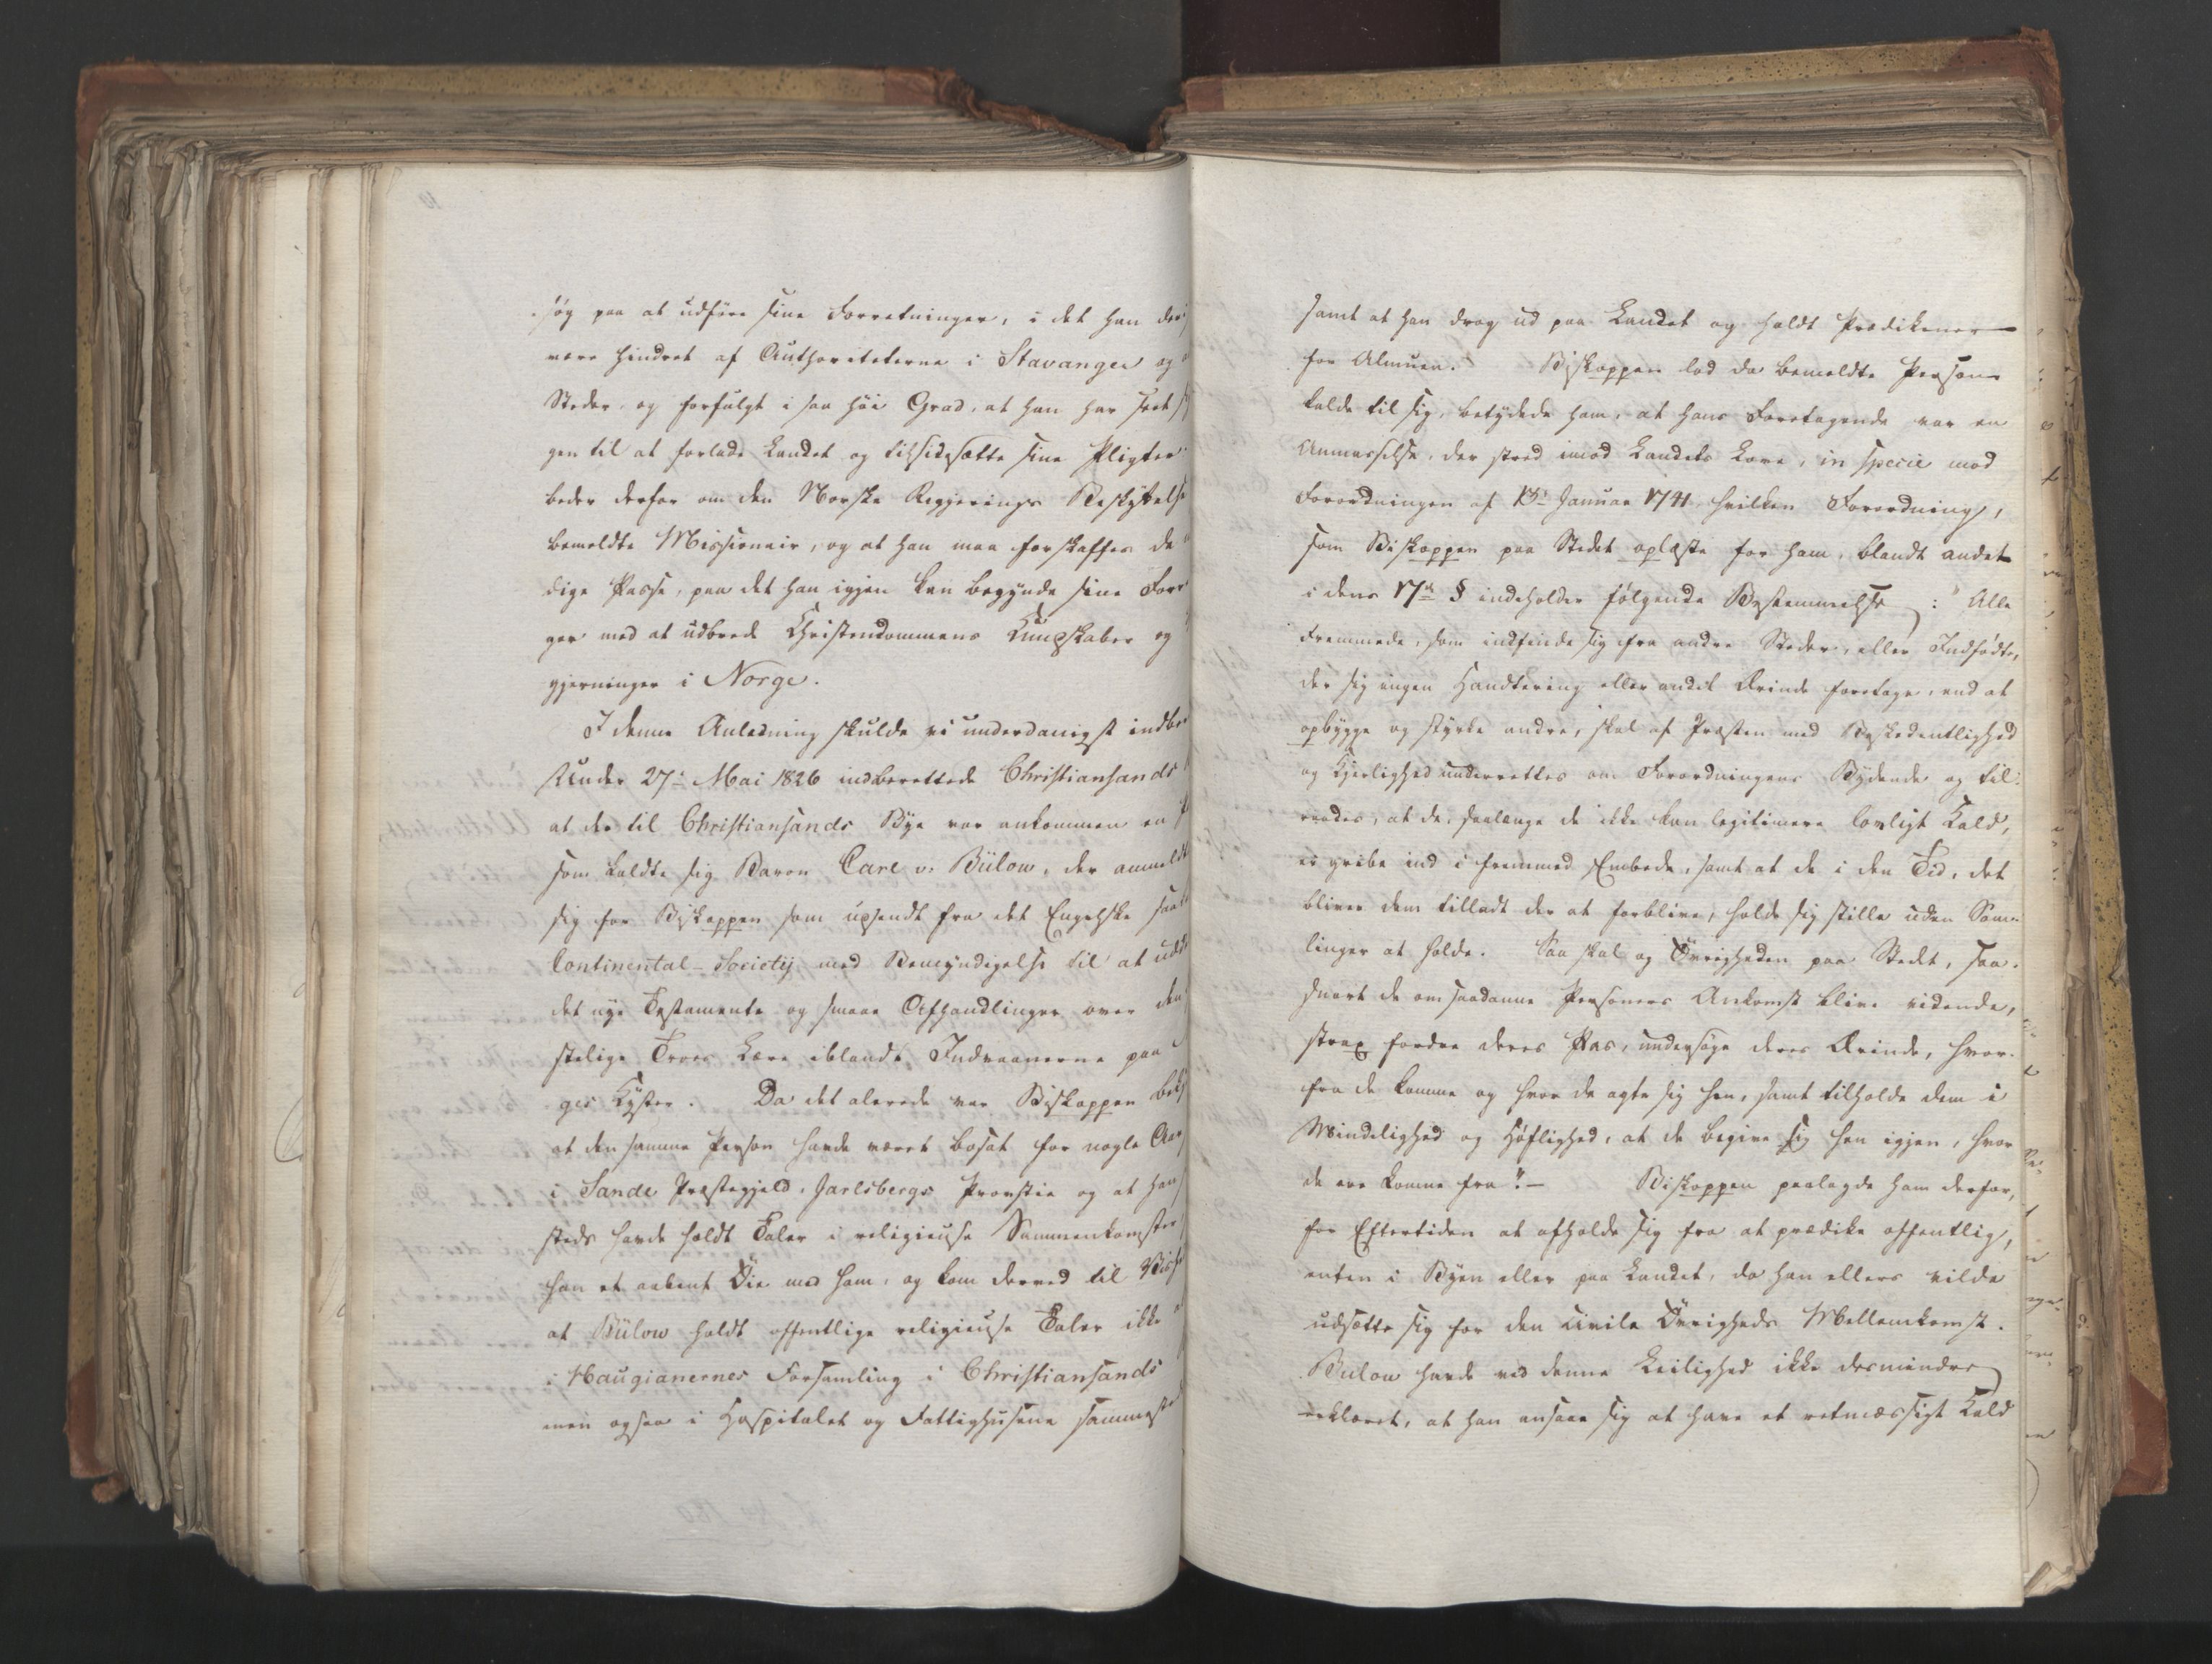 søg paa at udføre sine Forretninger, i det han der
være hindret af Authoriteterne i Stavanger og
Steder, og forfulgt i saa høi Grad, at han har seet
gen til at forlade Landet og tilsidesætte sine Pligter
beder derfor om den Norske Regjerings Beskyttelse
bemeldte Missionair, og at han maa forskaffes de
dige Passe, paa det han igjen kan begynde sine Forr
ger med at udbrede Christendommens Kundskaber og
gjerninger i Norge.
I denne Anledning skulde vi underdanigst indbe
Under 27de Mai 1826 indberettede Christiansands
at der til Christiansands Bye var ankommen en
som kaldte sig Baron Carl v. Bülow, der anmeldt
sig for Biskoppen som udsendt fra det Engelske saa
Continental-Society, med Bemyndigelse til at udd
det nye Testamente og smaae Afhandlinger over den
stelige Troes Lære iblandt Indvaanerne paa
ges Kyster. Da det alerede var Biskoppen bek
at den samme Person havde været bosat for nogle Aar
i Sande Præstegjeld, Jarlsbergs Provstie og at han
steds havde holdt Taler i religieuse Sammenkomster
han et aabent Öie med ham, og kom derved til Vish
at Bülow holdt offentlige religieuse Taler ikke
i Haugianernes Forsamling i Christiansands
men ogsaa i Hospitalet og Fattighusene sammest
samt at han drog ud paa Landet og holdt Prædikener
for Almuen. Biskoppen lod da bemeldte Person
kalde til sig, betydede ham, at hans Foretagende var en
Anmasselse, der stred imod Landets Love, in specie mod
Forordningen af 13de Januar 1741, hvilken Forordning,
som Biskoppen paa Stedet oplæste for ham, blandt andet
i dens 17de § indeholder følgende Bestemmelse: "Alle
Fremmede, som indfinde sig fra andre Steder, eller Indfødte,
der sig ingen Handtering eller andet Ærinde foretage, end at
opbygge og styrke andre, skal af Præsten med Beskedentlighed
og Kjerlighed underrettes om Forordningens Bydende og til-
raades, at de, saalænge de ikke kan legitimere lovligt Kald,
ei gribe ind i fremmed Embede, samt at de i den Tid, det
bliver dem tilladt der at forblive, holde sig stille uden Sam-
linger at holde. Saa skal og Övrigheden paa Stedet, saa-
snart de om saadanne Personers Ankomst blive vidende,
strax fordre deres Pas, undersøge deres Ærinde, hvor-
fra de komme og hvor de agte sig hen, samt tilholde dem i
Mindelighed og Høflighed, at de begive sig hen igjen, hvor
de ere komne fra". – Biskoppen paalagde ham derfor,
for Eftertiden at afholde sig fra at prædike offentlig,
enten i Byen eller paa Landet, da han ellers vilde
udsætte sig for den civile Övrigheds Mellemkomst.
Bülow havde ved denne Leilighed ikke desmindre
erklæret, at han ansaae sig at have et retmæssigt Kald